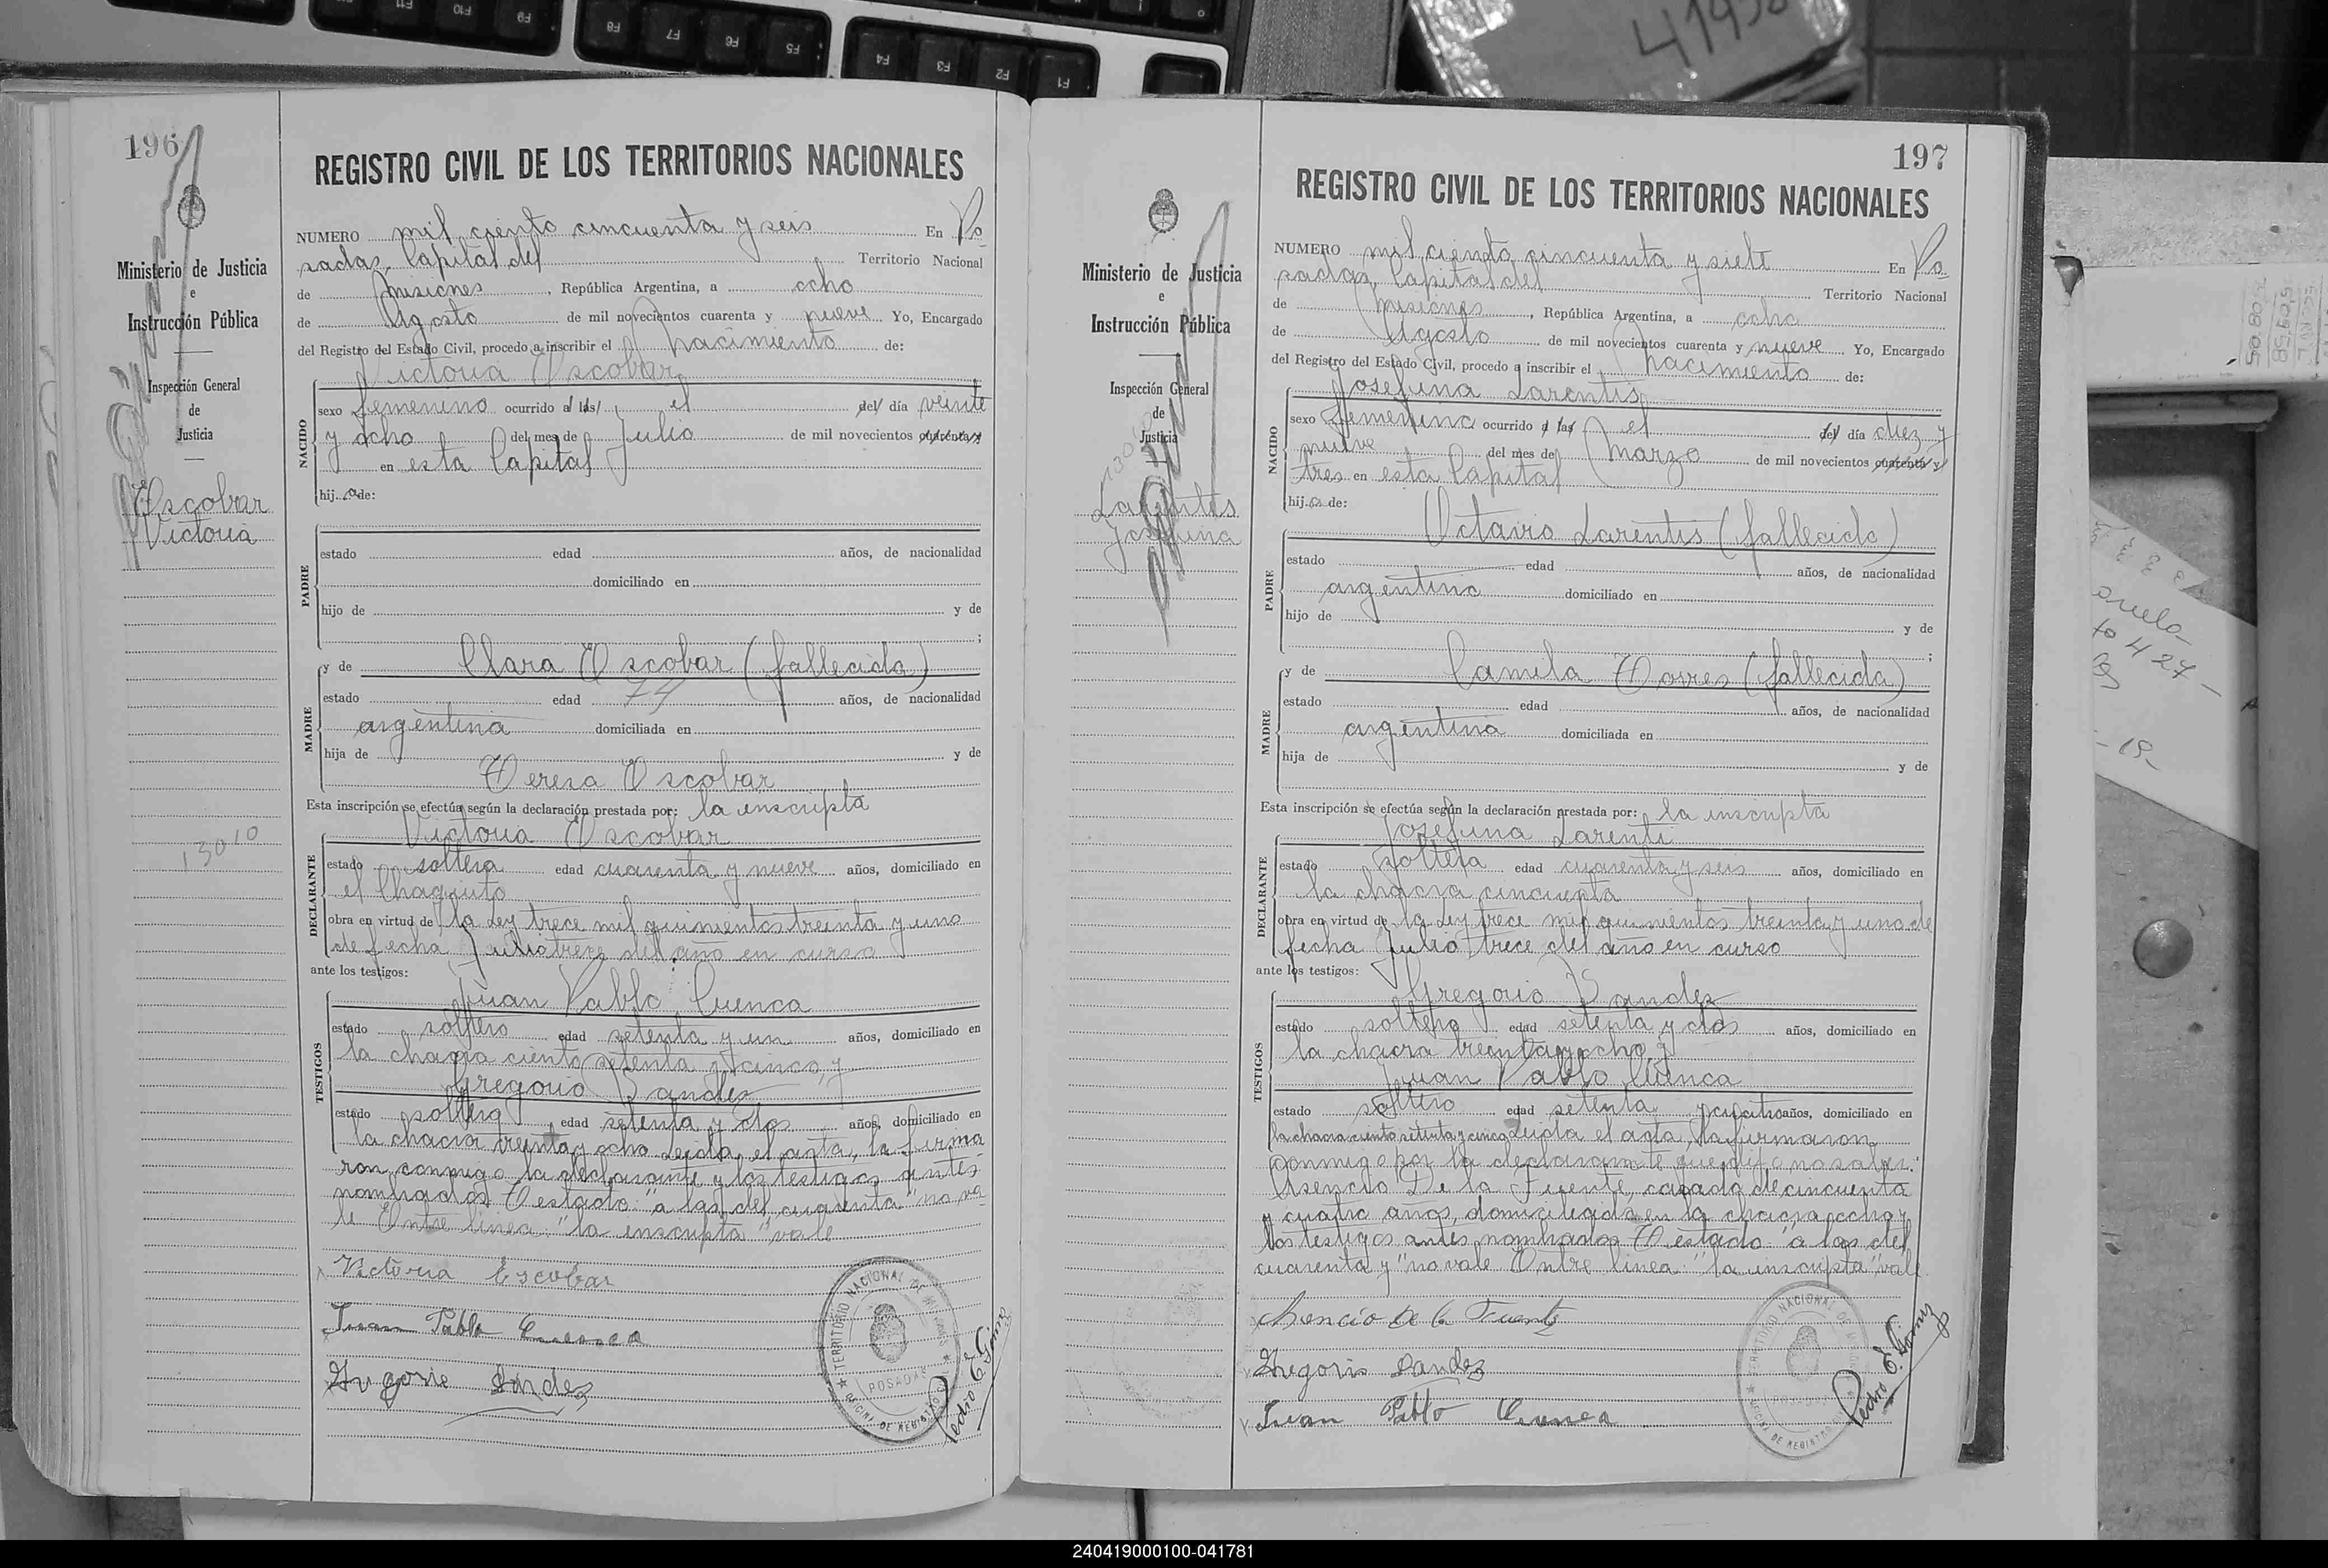 196
REGISTRO CIVIL DE LOS TERRITORIOS NACIONALES
Ministerio de Justicia
e
Instrucción Pública
Inspección General
de
Justicia
Escobar
Victoria
13010
NUMERO mil ciento cincuenta y seis En Po
sadas, Capital del Territorio Nacional
de Misiones, República Argentina, a ocho
de Agosto de mil novecientos cuarenta y nueve Yo, Encargado
del Registro del Estado Civil, procedo a inscribir el nacimiento de:
Victoria Escobar
NACIDO
sexo femenino ocurrido a las el del día veinte
y ocho del mes de Julio de mil novecientos cuarenta y
en esta Capital
hija de:
PADRE
estado edad años, de nacionalidad
domiciliado en
hijo de y de
;
MADRE
y de Clara Escobar (fallecida)
estado edad 74 años, de nacionalidad
argentina domiciliada en
hija de y de
Teresa Escobar
Esta inscripción se efectúa según la declaración prestada por: la inscripta
DECLARANTE
Victoria Escobar
estado soltera edad cuarenta y nueve años, domiciliado en
el Chaquito
obra en virtud de la Ley trece mil quinientos treinta y uno
de fecha Julio trece del año en curso
ante los testigos:
TESTIGOS
Juan Pablo Cuenca
estado soltero edad setenta y un años, domiciliado en
la chacra ciento setenta y cinco, y
Gregorio Sandez
estado soltero edad setenta y dos años, domiciliado en
la chacra treinta y ocho Leida el acta, la firma
ron conmigo la declarante y los testigos antes
nombrados Testado: "a las del cuarenta" no va
le Entre linea: "la inscripta" vale
Victoria Escobar
Juan Pablo Cuenca
Gregorio Sandez
TERRITORIO NACIONAL DE MISIONES
POSADAS
OFICINA DE REGISTRO
Pedro E. Gomez
197
REGISTRO CIVIL DE LOS TERRITORIOS NACIONALES
Ministerio de Justicia
e
Instrucción Pública
Inspección General
de
Justicia
Larentis
Josefina
NUMERO mil ciento cincuenta y siete En Po
sadas, Capital del Territorio Nacional
de Misiones, República Argentina, a ocho
de Agosto de mil novecientos cuarenta y nueve Yo, Encargado
del Registro del Estado Civil, procedo a inscribir el nacimiento de:
Josefina Larentis
NACIDO
sexo femenino ocurrido a las el del día diez y
nueve del mes de Marzo de mil novecientos cuarenta y
tres en esta Capital
hija de:
PADRE
Octavio Larentis (fallecido)
estado edad años, de nacionalidad
argentino domiciliado en
hijo de y de
;
MADRE
y de Camila Torres (fallecida)
estado edad años, de nacionalidad
argentina domiciliada en
hija de y de
Esta inscripción se efectúa según la declaración prestada por: la inscripta
DECLARANTE
Josefina Larenti
estado soltera edad cuarenta y seis años, domiciliado en
la chacra cincuenta
obra en virtud de la Ley trece mil quinientos treinta y uno de
fecha Julio trece del año en curso
ante los testigos:
TESTIGOS
Gregorio Sandez
estado soltero edad setenta y dos años, domiciliado en
la chacra treinta y ocho y
Juan Pablo Cuenca
estado soltero edad setenta años, domiciliado en
la chacra ciento setenta y cinco Leida el acta, la firmaron
conmigo por la declarante que dijo no saber:
Asencio De la Fuente, casado de cincuenta
y cuatro años, domiciliado en la chacra ocho y
los testigos antes nombrados Testado: "a las del
cuarenta y" no vale Entre linea: "la inscripta" vale
Asencio De la Fuente
Gregorio Sandez
Juan Pablo Cuenca
TERRITORIO NACIONAL DE MISIONES
POSADAS
OFICINA DE REGISTRO
Pedro E. Gomez
F11
F10
F9
F8
F7
F6
F5
F4
F3
F2
F1
240419000100-041781